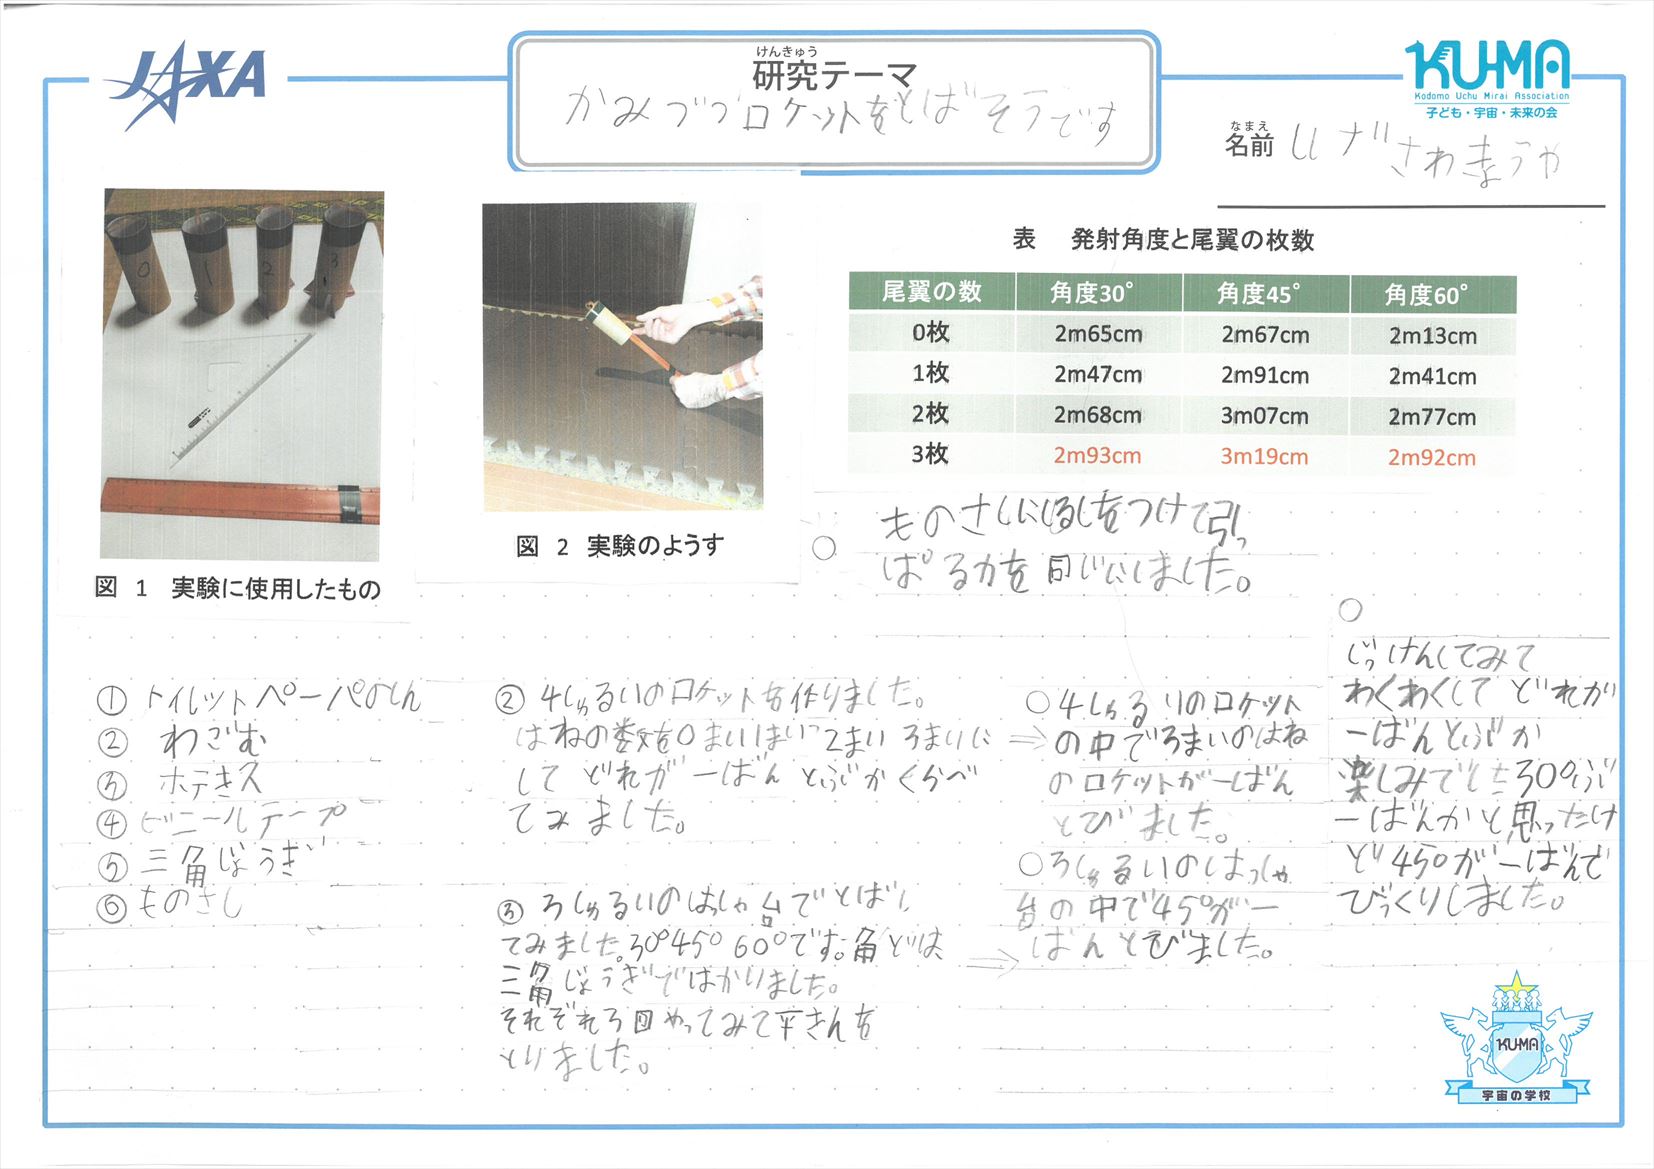 JAXA
けんきゅう
研究テーマ
かみづつロケットをとばそうです
KU-MA
Kodomo Uchu Mirai Association
子ども・宇宙・未来の会
なまえ
名前
0 1 2 3
図 1 実験に使用したもの
図 2 実験のようす
表 発射角度と尾翼の枚数
尾翼の数 角度30° 角度45° 角度60°
0枚 2m65cm 2m67cm 2m13cm
1枚 2m47cm 2m91cm 2m41cm
2枚 2m68cm 3m07cm 2m77cm
3枚 2m93cm 3m19cm 2m92cm
○ ものさしにしるしをつけて引っ
ぱる力を同じにしました。
① トイレットペーパのしん
② わごむ
③ ホチキス
④ ビニールテープ
⑤ 三角じょうぎ
⑥ ものさし
② 4しゅるいのロケットを作りました。
はねの数を0まい1まい2まい3まいに
して どれが一ばん とぶか くらべ
てみました。
③ 3しゅるいのはっしゃ台でとばし
てみました。30°45°60°です。角どは
三角じょうぎではかりました。
それぞれ3回やってみて平きんを
とりました。
○4しゅるいのロケット
⇒の中で3まいのはね
のロケットが一ばん
とびました。
○3しゅるいのはっしゃ
台の中で45°が一
⇒ばんとびました。
○
じっけんしてみて
わくわくして どれが
一ばんとぶか
楽しみでした30°が
一ばんかと思ったけ
ど45°が一ばんで
びっくりしました。
KU-MA
宇宙の学校